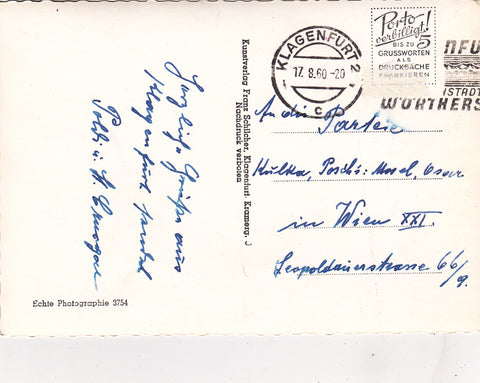 Herzliche Grüße aus
Klagenfurt sendet
Poldi u. H.
Echte Photographie 3754
Kunstverlag Franz Schilcher, Klagenfurt, Kramerg. J
Nachdruck verboten
KLAGENFURT 2
17. 8. 60 -20
C
Porto
verbilligt!
BIS ZU 5
GRUSSWORTEN
ALS
DRUCKSACHE
FRANKIEREN
NFU
STADT
WÖRTHERS
An die Partei
Kulka, Poschi: Mosel, Oskar
in Wien XXI.
Leopoldauerstrasse 66/
9.